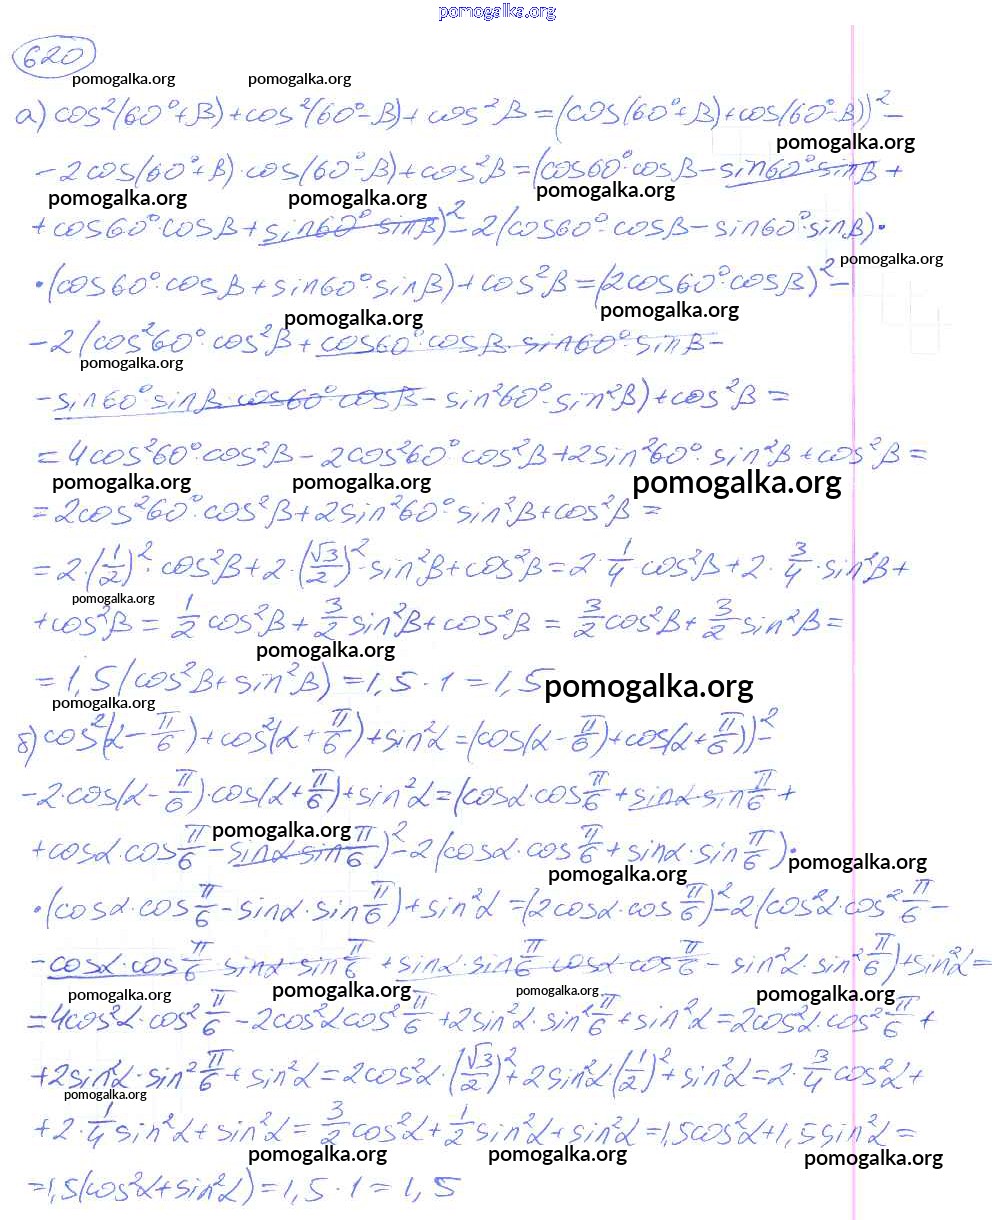 pomogalka.org
620
pomogalka.org pomogalka.org
а) cos²(60°+β)+cos²(60°-β)+cos²β=(cos(60°+β)+cos(60°-β))²-
pomogalka.org
-2cos(60°+β)·cos(60°-β)+cos²β=(cos60°·cosβ-sin60°·sinβ+
pomogalka.org pomogalka.org pomogalka.org
+cos60°·cosβ+sin60°·sinβ)²-2(cos60°·cosβ-sin60°·sinβ)·
pomogalka.org
·(cos60°·cosβ+sin60°·sinβ)+cos²β=(2cos60°·cosβ)²-
pomogalka.org pomogalka.org
-2(cos²60°·cos²β+cos60°·cosβ·sin60°·sinβ-
pomogalka.org
-sin60°·sinβ·cos60°·cosβ-sin²60°·sin²β)+cos²β=
=4cos²60°·cos²β-2cos²60°·cos²β+2sin²60°·sin²β+cos²β=
pomogalka.org pomogalka.org pomogalka.org
=2cos²60°·cos²β+2sin²60°·sin²β+cos²β=
=2·(1/2)²·cos²β+2·(√3/2)²·sin²β+cos²β=2·1/4 cos²β+2·3/4·sin²β+
pomogalka.org
+cos²β=1/2 cos²β+3/2 sin²β+cos²β=3/2 cos²β+3/2 sin²β=
pomogalka.org
=1,5(cos²β+sin²β)=1,5·1=1,5
pomogalka.org
pomogalka.org
б) cos²(α-π/6)+cos²(α+π/6)+sin²α=(cos(α-π/6)+cos(α+π/6))²-
-2·cos(α-π/6)·cos(α+π/6)+sin²α=(cosα·cosπ/6+sinα·sinπ/6+
pomogalka.org
+cosα·cosπ/6-sinα·sinπ/6)²-2(cosα·cosπ/6+sinα·sinπ/6)·
pomogalka.org pomogalka.org
·(cosα·cosπ/6-sinα·sinπ/6)+sin²α=(2cosα·cosπ/6)²-2(cos²α·cos²π/6-
-cosα·cosπ/6 sinα·sinπ/6+sinα·sinπ/6 cosα·cosπ/6-sin²α·sin²π/6)+sin²α=
pomogalka.org pomogalka.org pomogalka.org pomogalka.org
=4cos²α·cos²π/6-2cos²αcos²π/6+2sin²α·sin²π/6+sin²α=2cos²α·cos²π/6+
+2sin²α·sin²π/6+sin²α=2cos²α·(√3/2)²+2sin²α(1/2)²+sin²α=2·3/4 cos²α+
pomogalka.org
+2·1/4 sin²α+sin²α=3/2 cos²α+1/2 sin²α+sin²α=1,5cos²α+1,5sin²α=
pomogalka.org pomogalka.org pomogalka.org
=1,5(cos²α+sin²α)=1,5·1=1,5